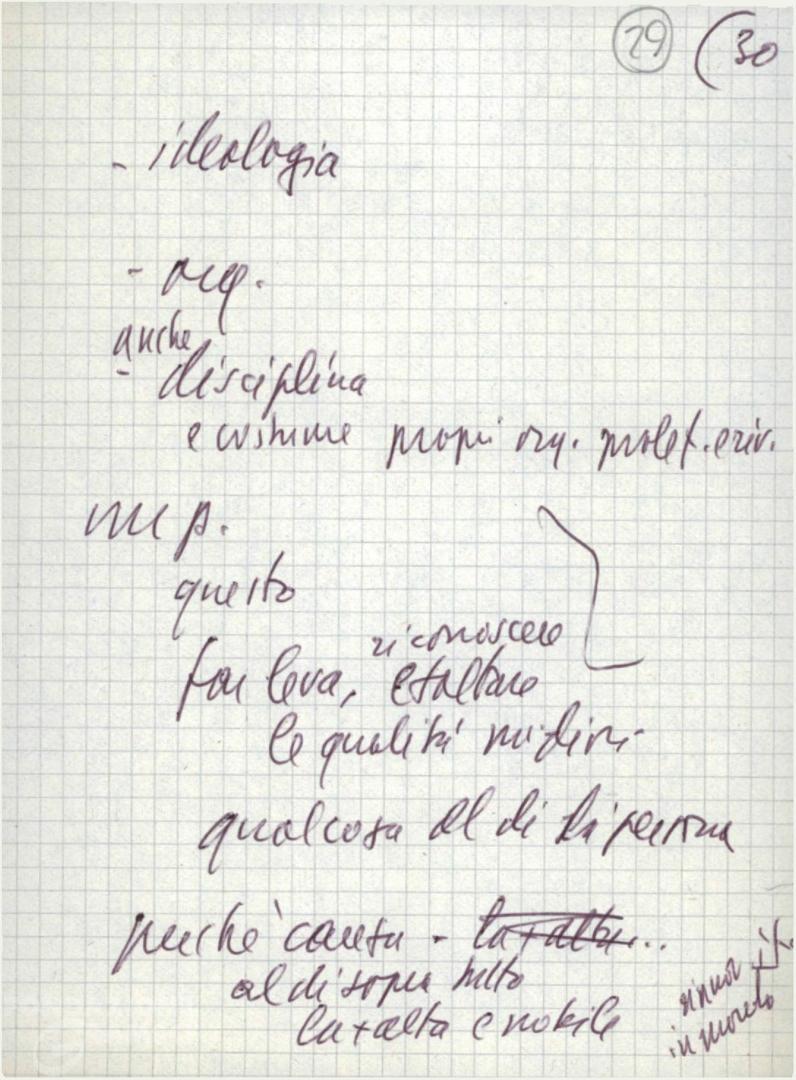 29 (30
- ideologia
- org.
anche
- disciplina
e costume propri org. prolet. e riv.
ma p.
questo
far leva, riconoscere
esaltare
le qualità
qualcosa al di là persona
perché causa - la + alta...
al di sopra tutto
la + alta e nobile
rinnov. it.
in mondo